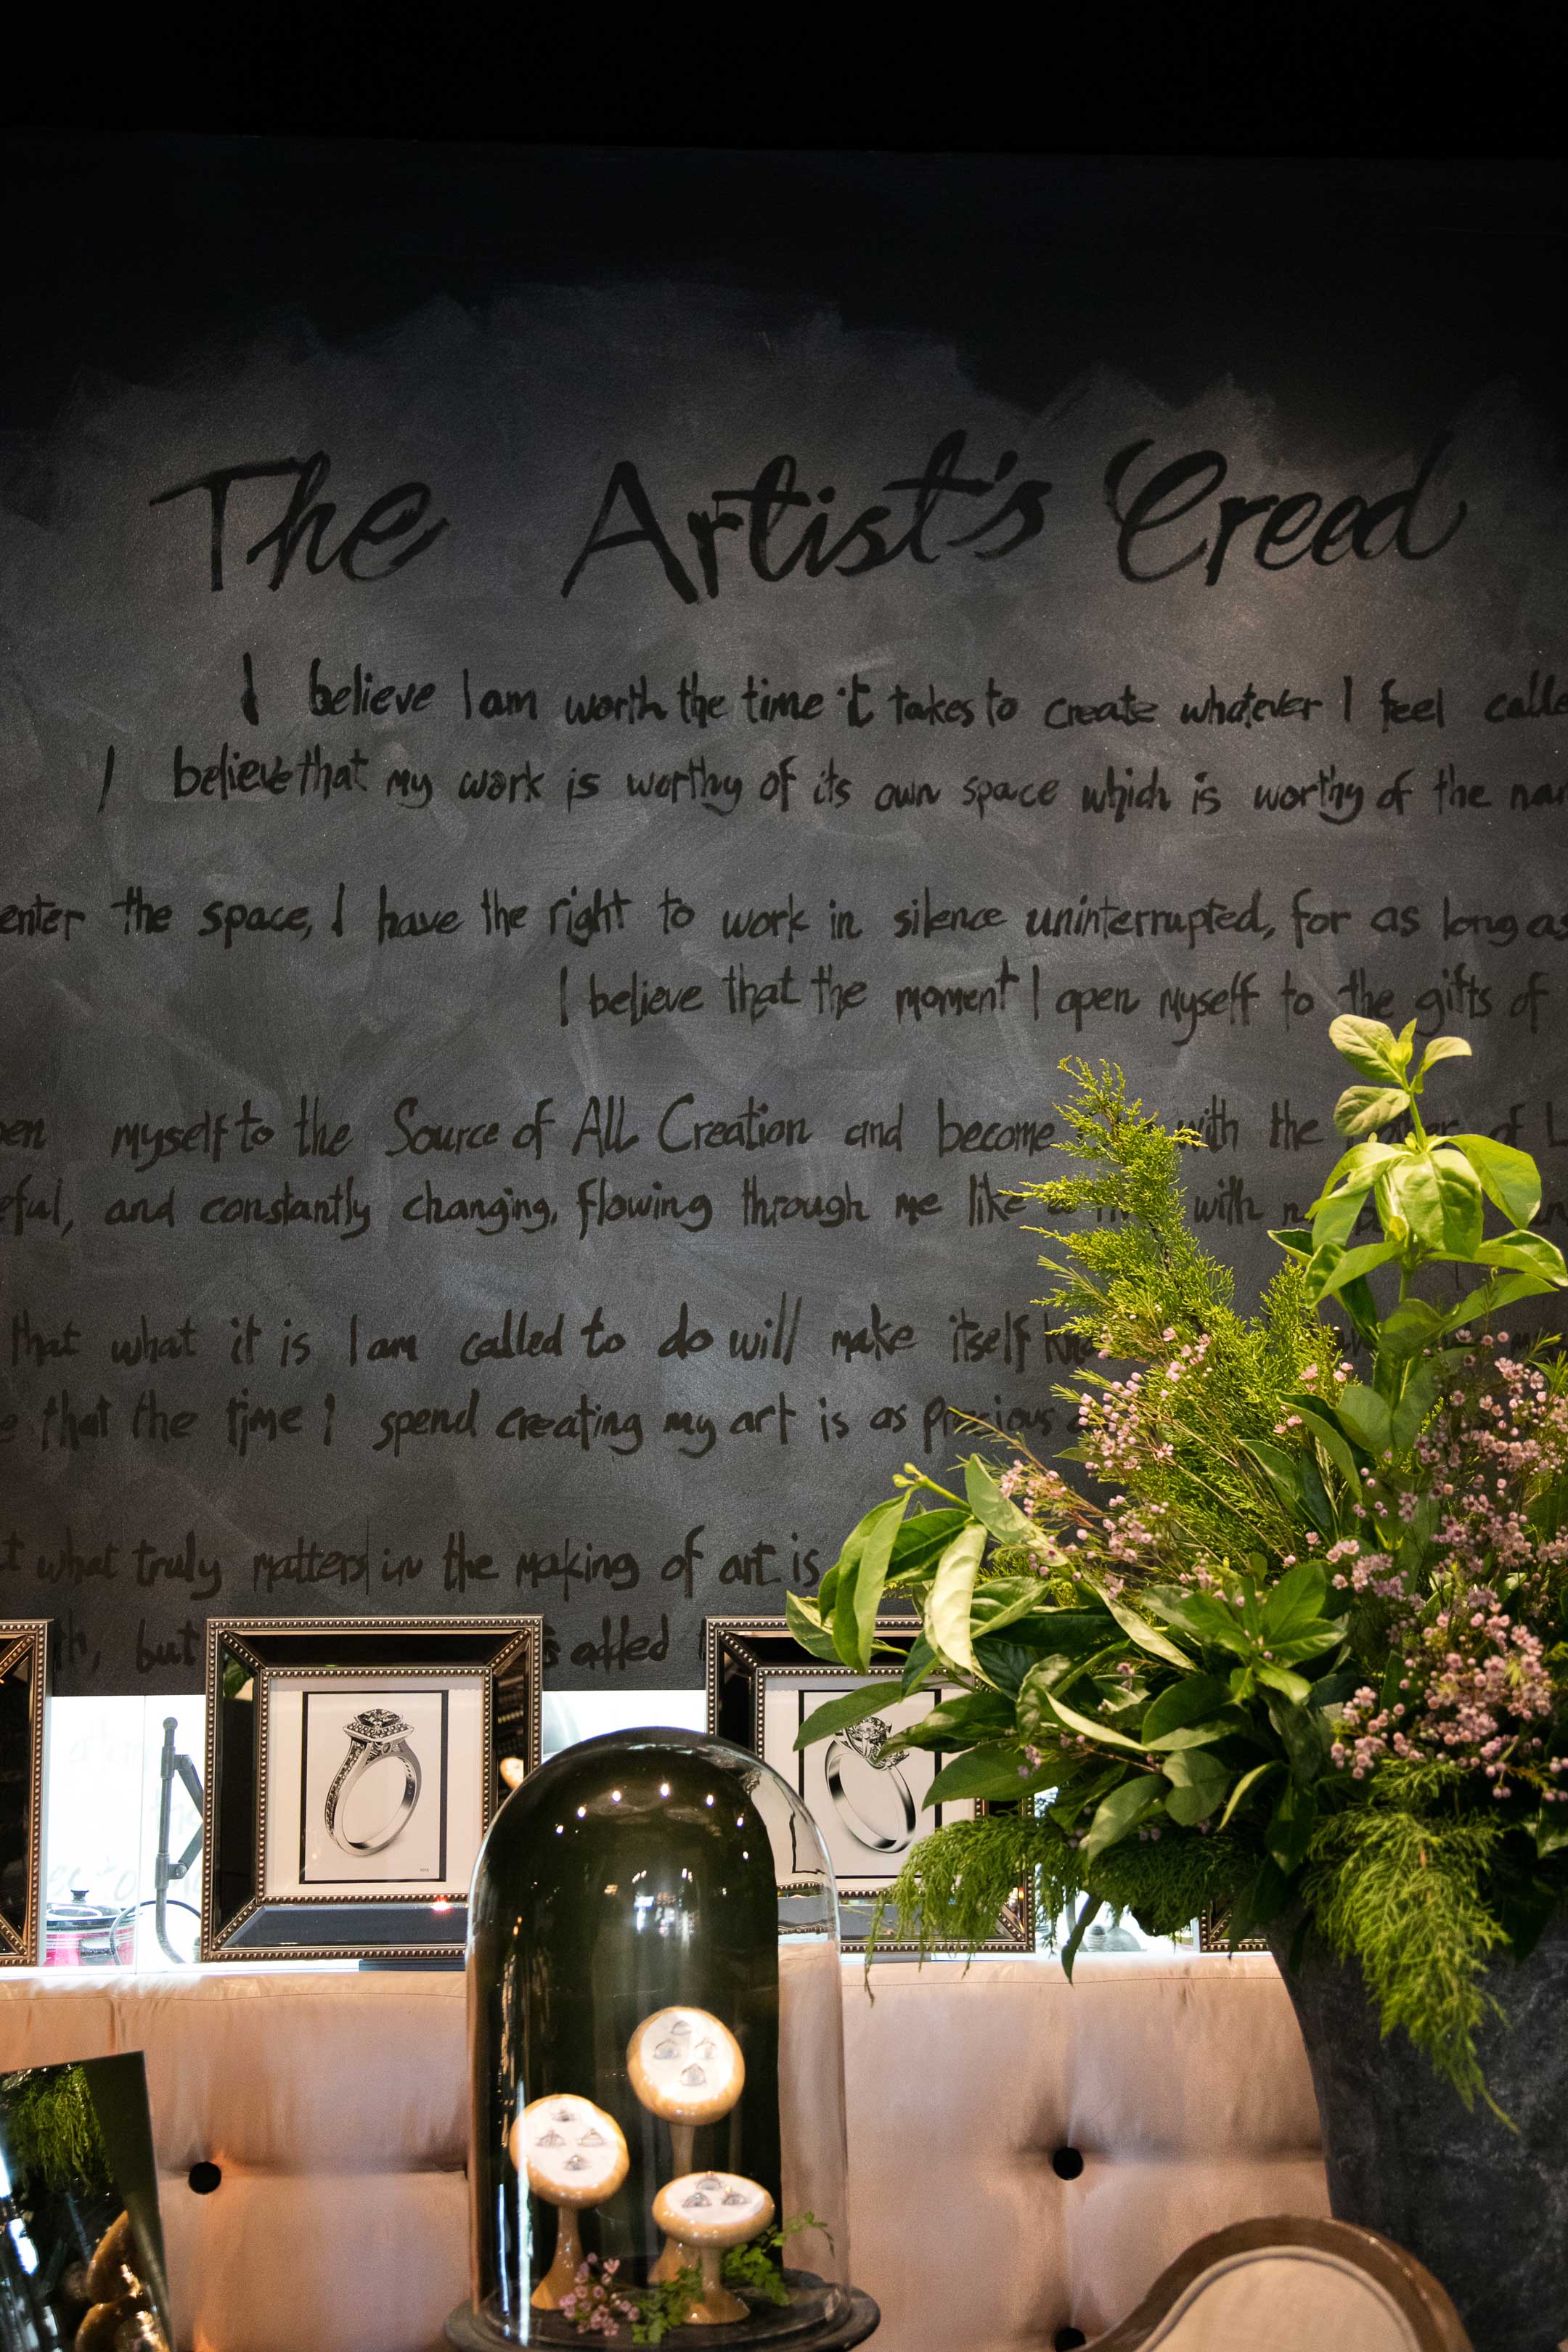 The Artist's Creed
I believe I am worth the time it takes to create whatever I feel
I believe that my work is worthy of its own space which is worthy of the
enter the space, I have the right to work in silence uninterrupted, for as long as
I believe that the moment I open myself to the gifts of
myself to the Source of ALL Creation and become with the of
and constantly changing, flowing through me like with
that what it is I am called to do will make itself
that the time I spend creating my art is as precious
what truly matters in the making of art is
but